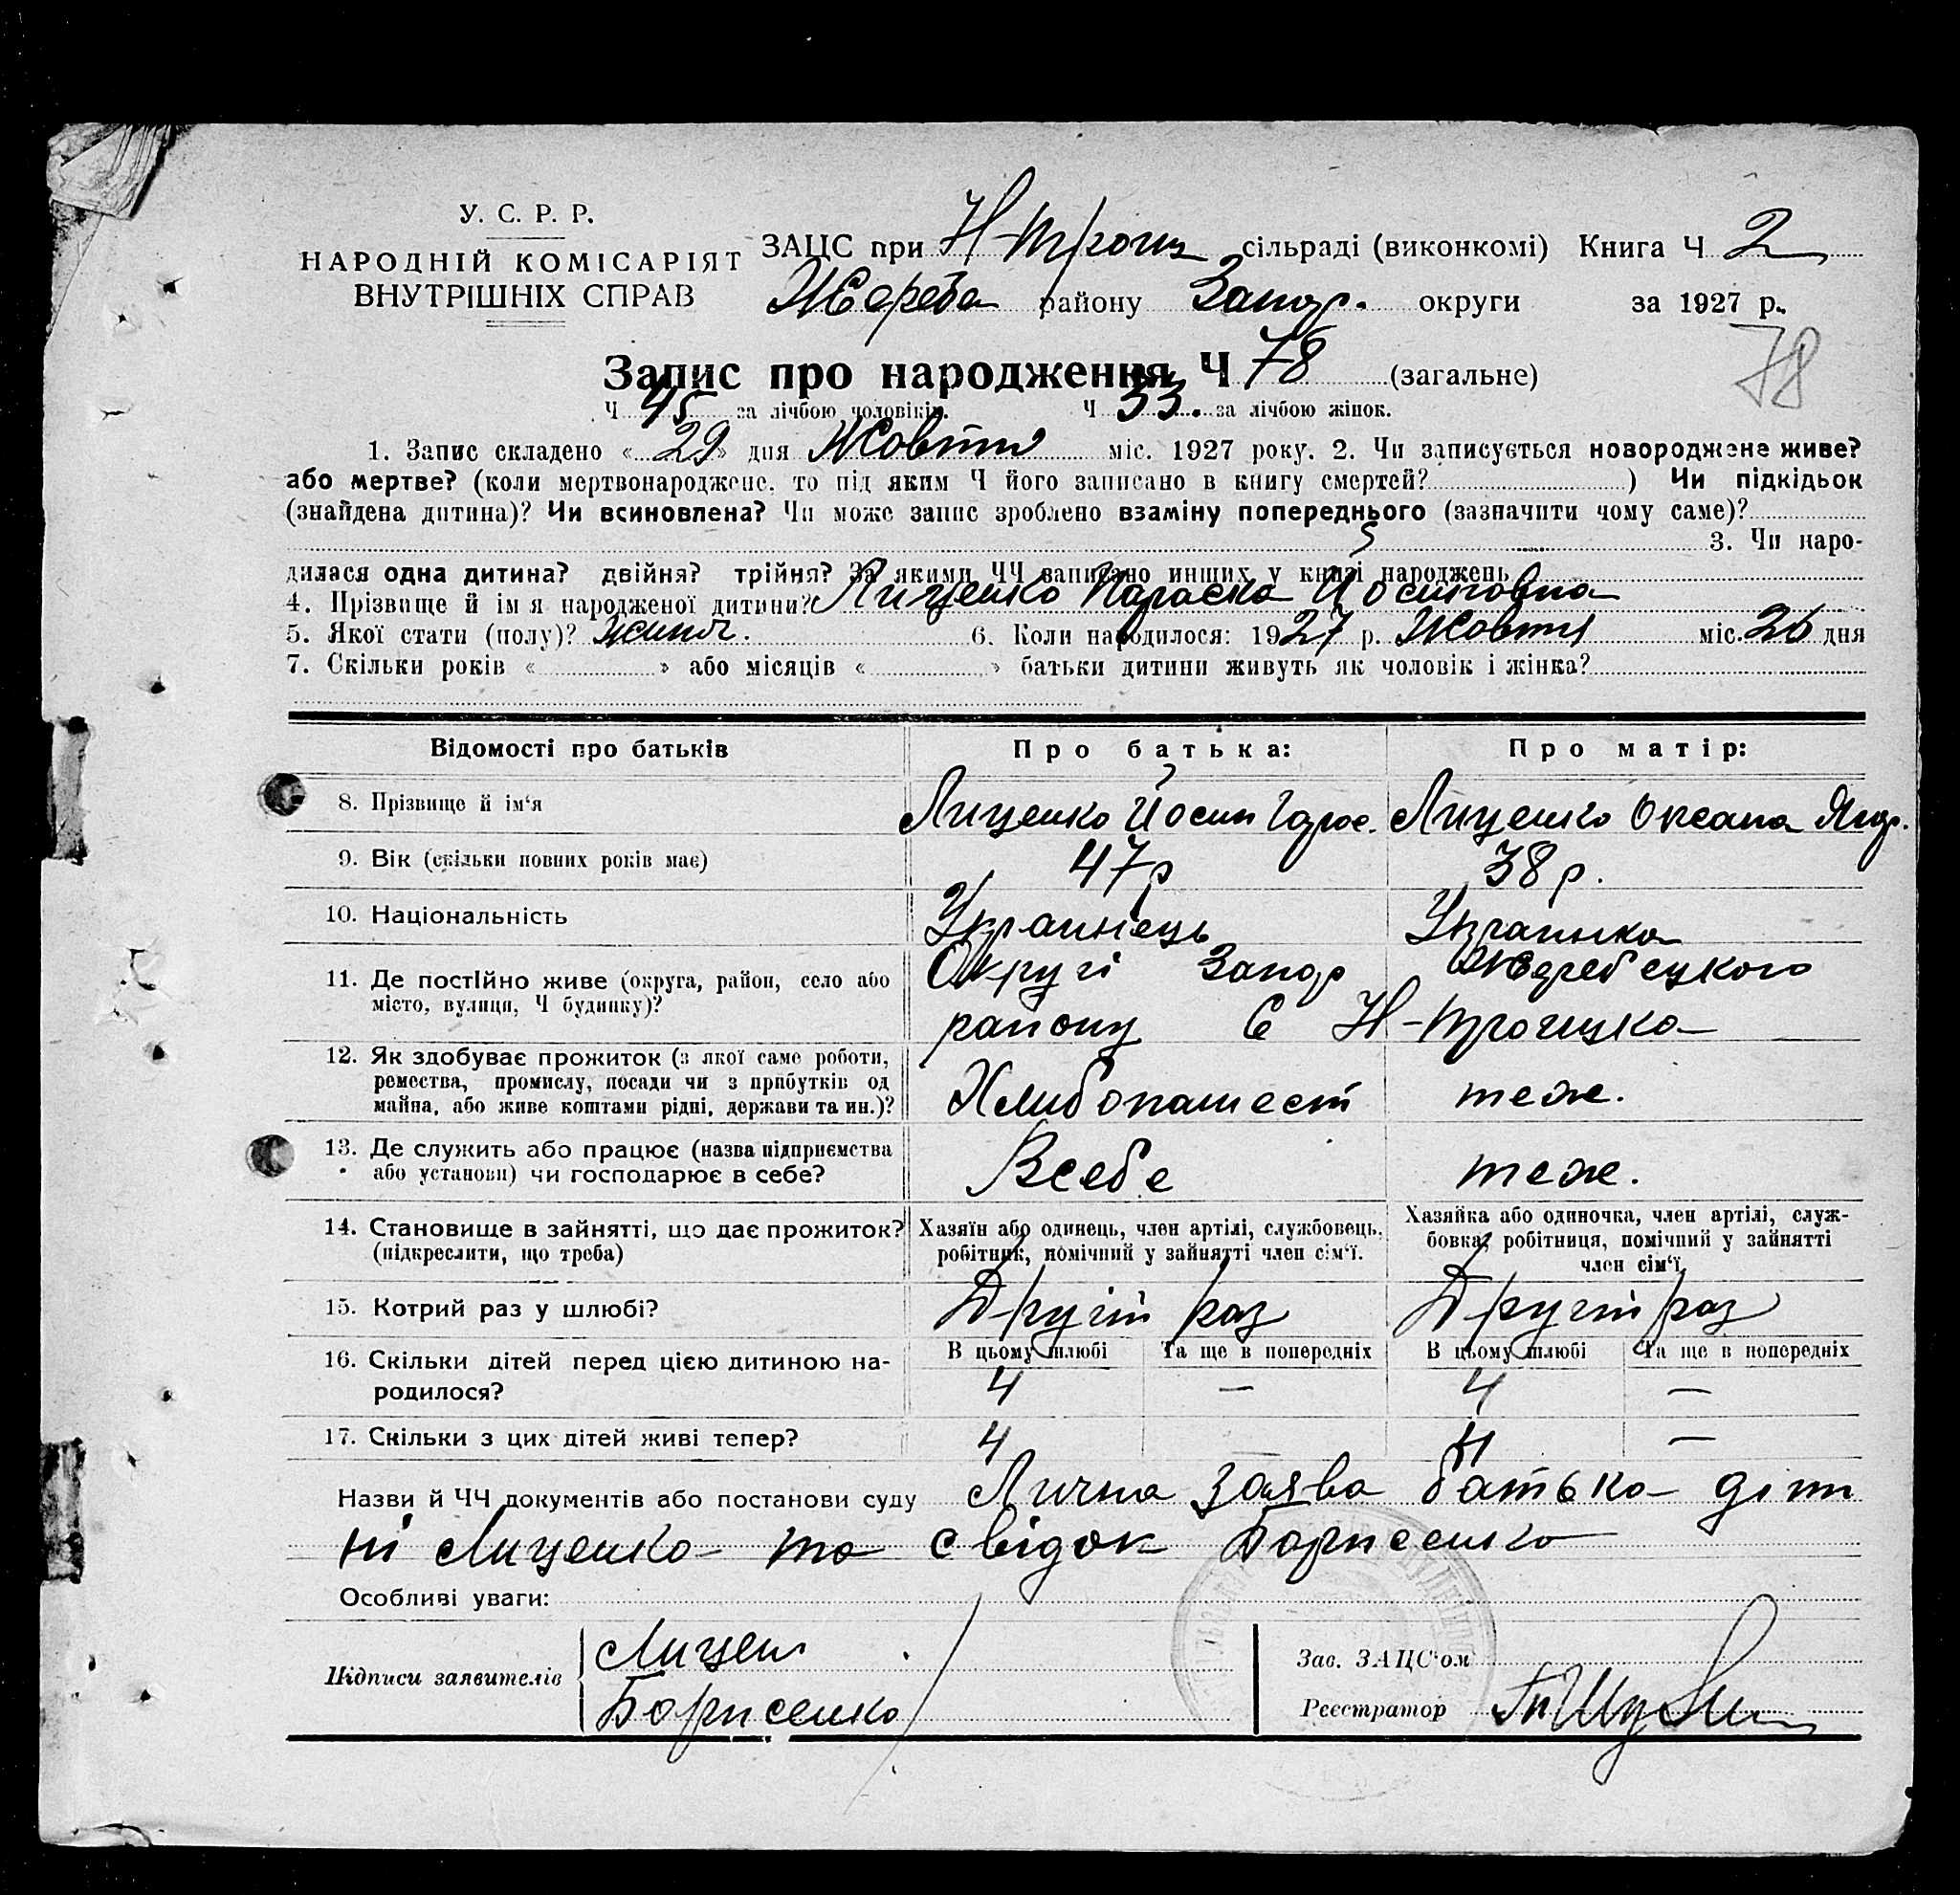 У. С. Р. Р.
НАРОДНІЙ КОМІСАРІЯТ
ВНУТРІШНІХ СПРАВ
ЗАЦС при Н-Троиц сільраді (виконкомі) Книга Ч 2
Жереб району Запор. округи за 1927 р.
78
Запис про народження Ч 78 (загальне)
Ч 45 за лічбою чоловіків. Ч 33. за лічбою жінок.
1. Запис складено « 29 » дня Жовтня міс. 1927 року. 2. Чи записується новороджене живе?
або мертве? (коли мертвонароджене, то під яким Ч його записано в книгу смертей? ) Чи підкідьок
(знайдена дитина)? Чи всиновлена? Чи може запис зроблено взаміну попереднього (зазначити чому саме)?
3. Чи наро-
дилася одна дитина? двійня? трійня? За якими ЧЧ записано инших у книзі народжень
4. Прізвище й ім'я народженої дитини? Лиценко Параска Йосиповна
5. Якої стати (полу)? жиноч. 6. Коли народилося: 1927 р. Жовтня міс. 26 дня
7. Скільки років « » або місяців « » батьки дитини живуть як чоловік і жінка?
Відомості про батьків Про батька: Про матір:
8. Прізвище й ім'я Лиценко Йосип Лиценко Оксана
9. Вік (скільки повних років має) 47 р 38 р.
10. Національність Украинець Украинка
11. Де постійно живе (округа, район, село або Округі Запор Жеребецкого
місто, вулиця, Ч будинку)? району С Н-Троицка
12. Як здобуває прожиток (з якої саме роботи,
ремества, промислу, посади чи з прибутків од Хлибопашест теж.
майна, або живе коштами рідні, держави та ин.)?
13. Де служить або працює (назва підприємства Всебе теж.
або установи) чи господарює в себе?
14. Становище в зайнятті, що дає прожиток? Хазяїн або одинець, член артілі, службовець, Хазяйка або одиночка, член артілі, служ-
(підкреслити, що треба) робітник, помічний у зайнятті член сім'ї. бовка, робітниця, помічний у зайнятті
член сім'ї
15. Котрий раз у шлюбі? Другій раз Другий раз
16. Скільки дітей перед цією дитиною на- В цьому шлюбі Та ще в попередніх В цьому шлюбі Та ще в попередніх
родилося? 4 — 4 —
17. Скільки з цих дітей живі тепер? 4 — 4 —
Назви й ЧЧ документів або постанови суду Лична заява батька діти
ні Лиценко та свідок Борисенко
Особливі уваги:
Підписи заявителів Лицен
Борисенко
Зав. ЗАЦС'ом
Реєстратор